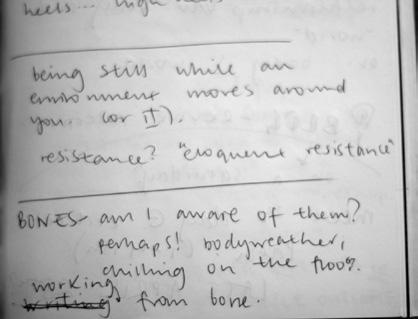 heels... high
being still while an
environment moves around
you. (or I).
resistance? "eloquent resistance"
BONES- am I aware of them?
perhaps! bodyweather,
chilling on the floor.
working
writing from bone.